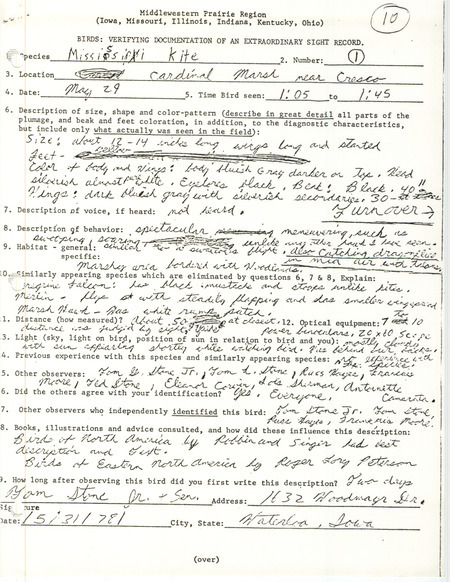 Middlewestern Prairie Region
(Iowa, Missouri, Illinois, Indiana, Kentucky, Ohio)
10
BIRDS: VERIFYING DOCUMENTATION OF AN EXTRAORDINARY SIGHT RECORD.
Species Mississippi Kite 2. Number: 1
3. Location Cardinal Marsh near Cresco
4. Date: May 29 5. Time Bird seen: 1:05 to 1:45
6. Description of size, shape and color-pattern (describe in great detail all parts of the
plumage, and beak and feet coloration, in addition to the diagnostic characteristics,
but include only what actually was seen in the field):
Size: about 12-14 inches long wings long and
feet-
Color of body and Wings: body bluish Gray darker on Head
silverish almost white. Eyelores black. Beak: Black.
Wings: dark bluish gray with silverish secondaries. 30-40"
7. Description of voice, if heard: not heard. Turn over →
8. Description of behavior: spectacular maneuvering, such as
swooping, soaring unlike any other hawk I have seen.
9. Habitat - general: similar to swallows flight. also catching dragonflies
specific: in mid air with talons.
Marshy area borderd with Woodlands.
10. Similarly appearing species which are eliminated by questions 6, 7 & 8, Explain:
Peregrine Falcon: has black mustache and stoops unlike kites.
Merlin - flys with steadily flapping and has smaller wingspand
Marsh Hawk - has white rump patch.
11. Distance (how measured)? About 50 at closest. 12. Optical equipment: 7 to 10
distance was judged by sight. power binoculars, 20 x 60 scope
3. Light (sky, light on bird, position of sun in relation to bird and you): mostly cloudy
with sun appearing shortly while watching bird. Was behind our backs.
4. Previous experience with this species and similarly appearing species: no experience with
the species.
5. Other observers: Tom G. Stone Jr., Tom L. Stone, Russ Hayes, Francis
Moore, Ted Stone, Eleanor Corwin, Lois Sherman, Antoinette
6. Did the others agree with your identification? Yes, Everyone. Camerata.
7. Other observers who independently identified this bird: Tom Stone Jr. Tom Stone,
Russ Hayes, Francis Moore.
8. Books, illustrations and advice consulted, and how did these influence this description:
Birds of North America by Robbins and Singer had best
description and Text.
Birds of Eastern North America by Roger Tory Peterson
9. How long after observing this bird did you first write this description? Two days
Tom Stone Jr. + Sen. Address: 1632 Woodmayr Dr.
Signature
Date: 5/31/78 City, State: Waterloo, Iowa
(over)